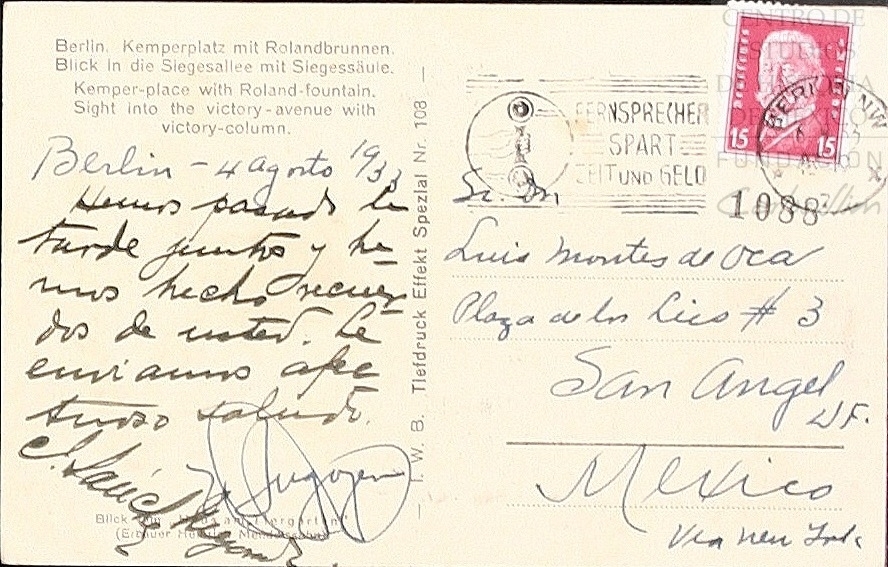 Berlin. Kemperplatz mit Rolandbrunnen.
Blick in die Siegesallee mit Siegessäule.
Kemper-place with Roland-fountain.
Sight into the victory-avenue with
victory-column.
Berlin - 4 agosto 1933
Hemos pasado la
tarde juntos y he-
mos hecho recuer-
dos de usted. Le
enviamos afec
tuoso saludo.
Blick vom am Tiergarten"
(Erbauer Mendelssohn)
I. W. B. Tiefdruck Effekt Spezial Nr. 108
FERNSPRECHER
SPART
ZEIT UND GELD
BERLIN NW
15 15
CENTRO DE
ESTUDIOS
DE HISTORIA
DE MEXICO
FUNDACIÓN
1088
Sr. Dn
Luis Montes de Oca
Plaza de los # 3
San Angel
D.F.
Mexico
Via New York